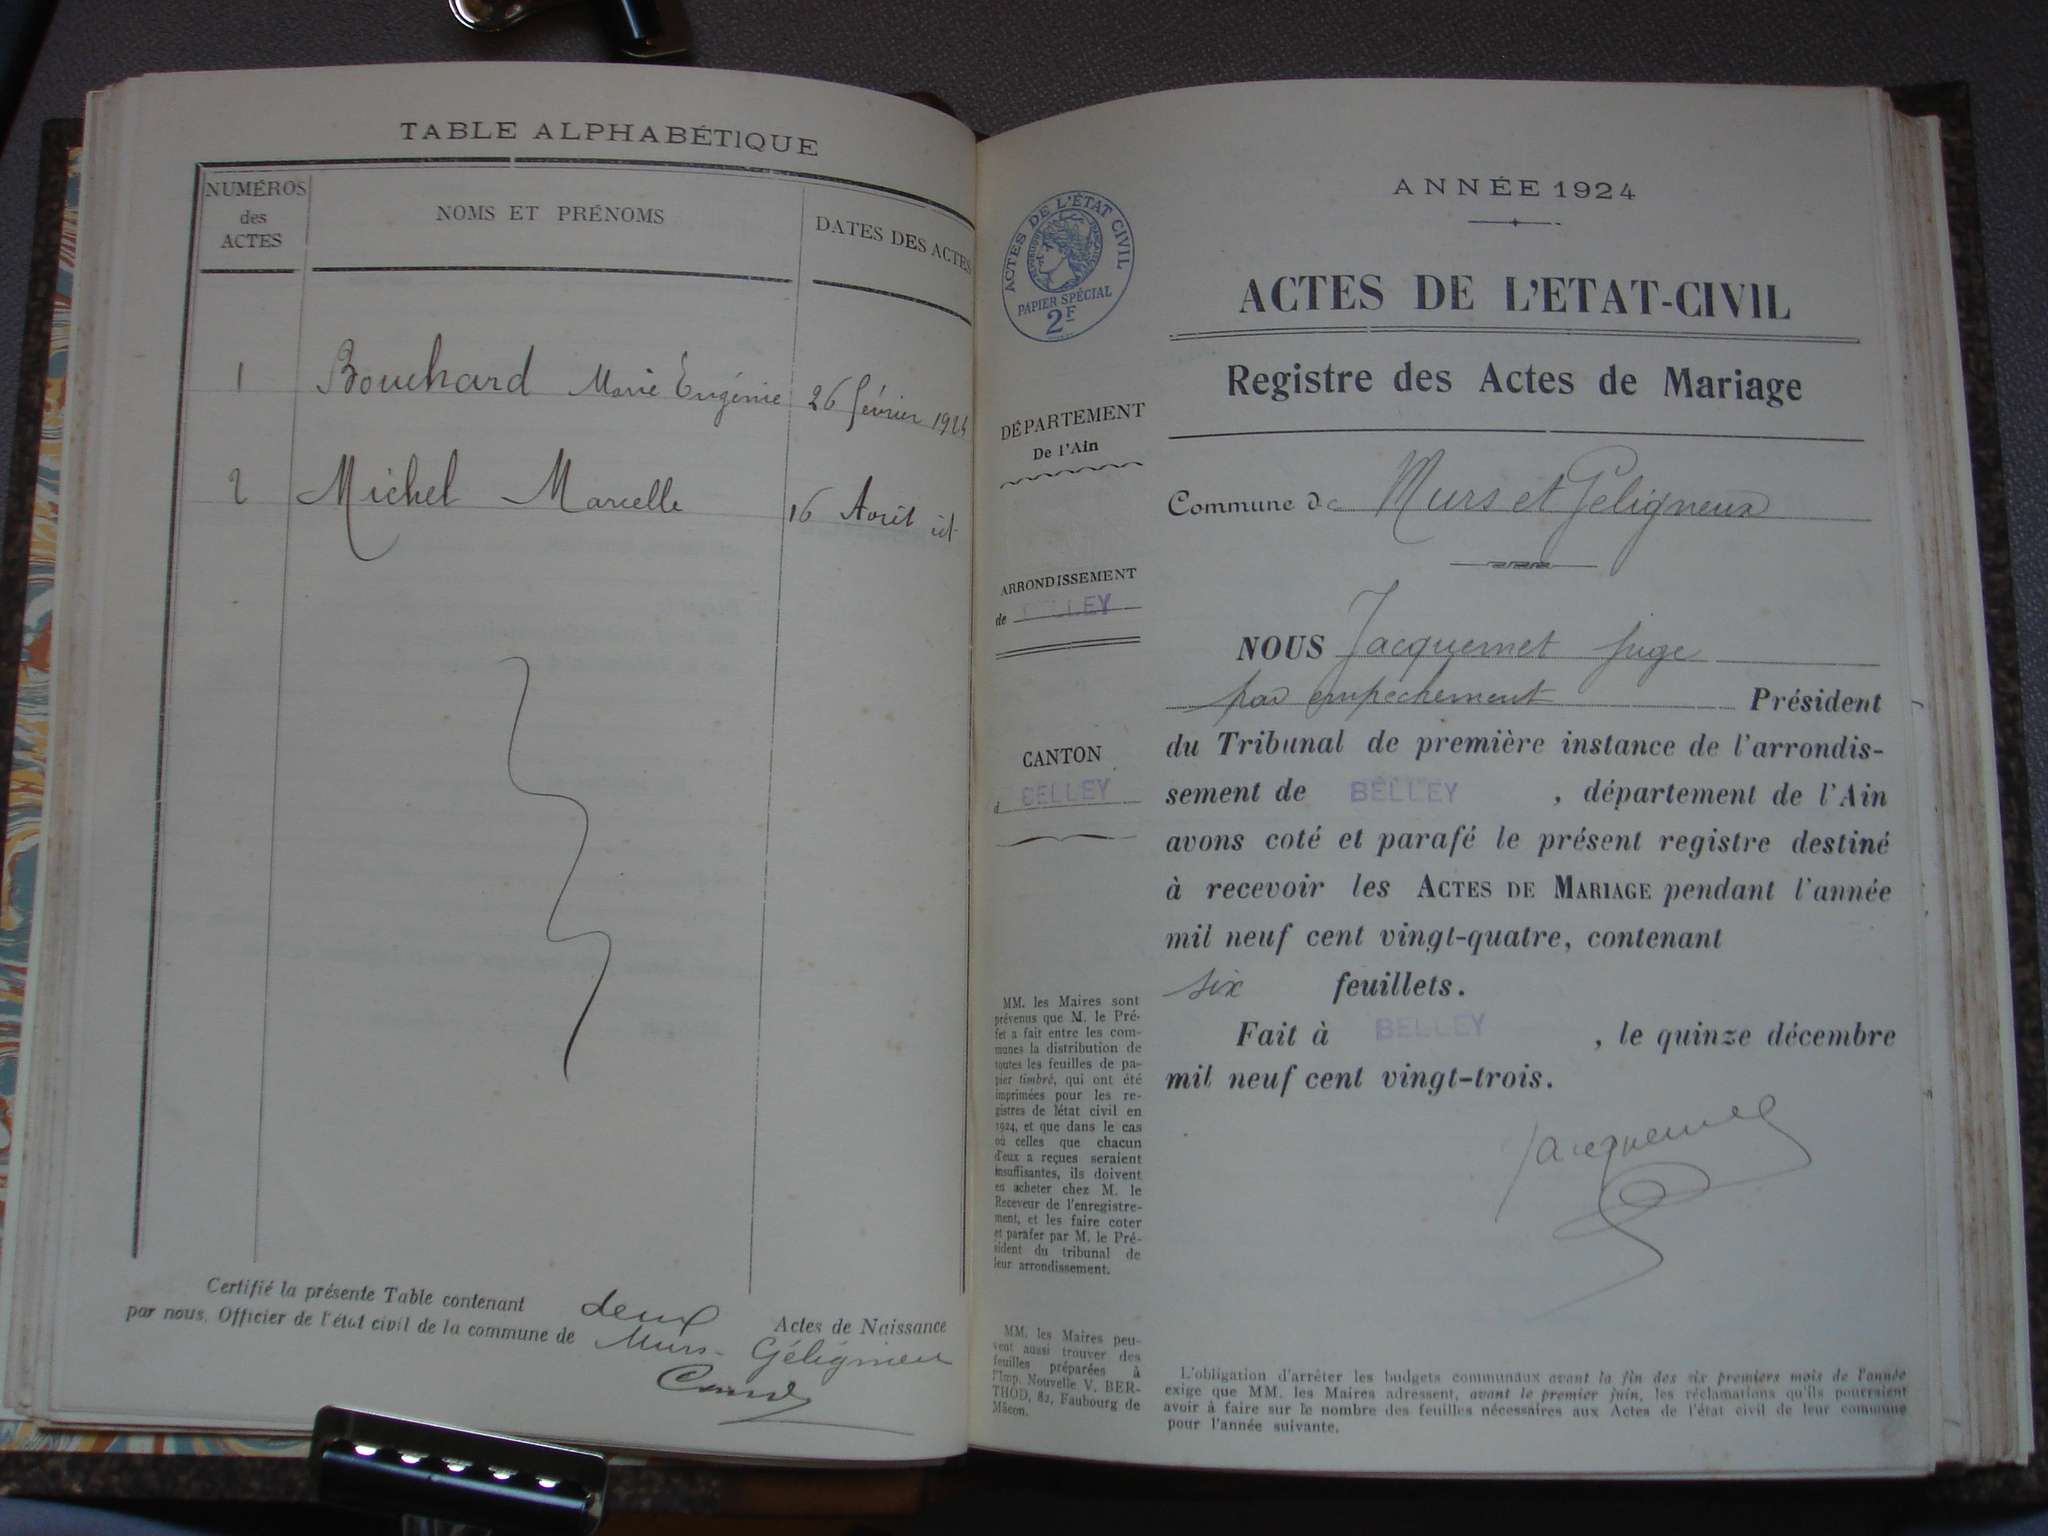 TABLE ALPHABÉTIQUE
NUMÉROS
des
ACTES
NOMS ET PRÉNOMS
DATES DES ACTES
1 Bouchard Marie Eugénie 26 février 1924
2 Michel Marcelle 16 Août id
Certifié la présente Table contenant deux Actes de Naissance
par nous, Officier de l'état civil de la commune de Murs-Géligneu
ACTES DE L'ÉTAT CIVIL
RÉPUBLIQUE FRANÇAISE
PAPIER SPÉCIAL
2F
DÉPARTEMENT
De l'Ain
ARRONDISSEMENT
de BELLEY
CANTON
d BELLEY
MM. les Maires sont
prévenus que M. le Pré-
fet a fait entre les com-
munes la distribution de
toutes les feuilles de pa-
pier timbré, qui ont été
imprimées pour les re-
gistres de létat civil en
1924, et que dans le cas
où celles que chacun
d'eux a reçues seraient
insuffisantes, ils doivent
en acheter chez M. le
Receveur de l'enregistre-
ment, et les faire coter
et parafer par M. le Pré-
sident du tribunal de
leur arrondissement.
MM. les Maires peu-
vent aussi trouver des
feuilles préparées à
l'Imp. Nouvelle V. BER-
THOD, 82, Faubourg de
Mâcon.
ANNÉE 1924
ACTES DE L'ETAT-CIVIL
Registre des Actes de Mariage
Commune de Murs et Géligneux
NOUS Jacquemet juge
par empêchement Président
du Tribunal de première instance de l'arrondis-
sement de BELLEY , département de l'Ain
avons coté et parafé le présent registre destiné
à recevoir les ACTES DE MARIAGE pendant l'année
mil neuf cent vingt-quatre, contenant
six feuillets.
Fait à BELLEY , le quinze décembre
mil neuf cent vingt-trois.
Jacquemet
L'obligation d'arrêter les budgets communaux avant la fin des six premiers mois de l'année
exige que MM. les Maires adressent, avant le premier juin, les réclamations qu'ils pourraient
avoir à faire sur le nombre des feuilles nécessaires aux Actes de l'état civil de leur commune
pour l'année suivante.